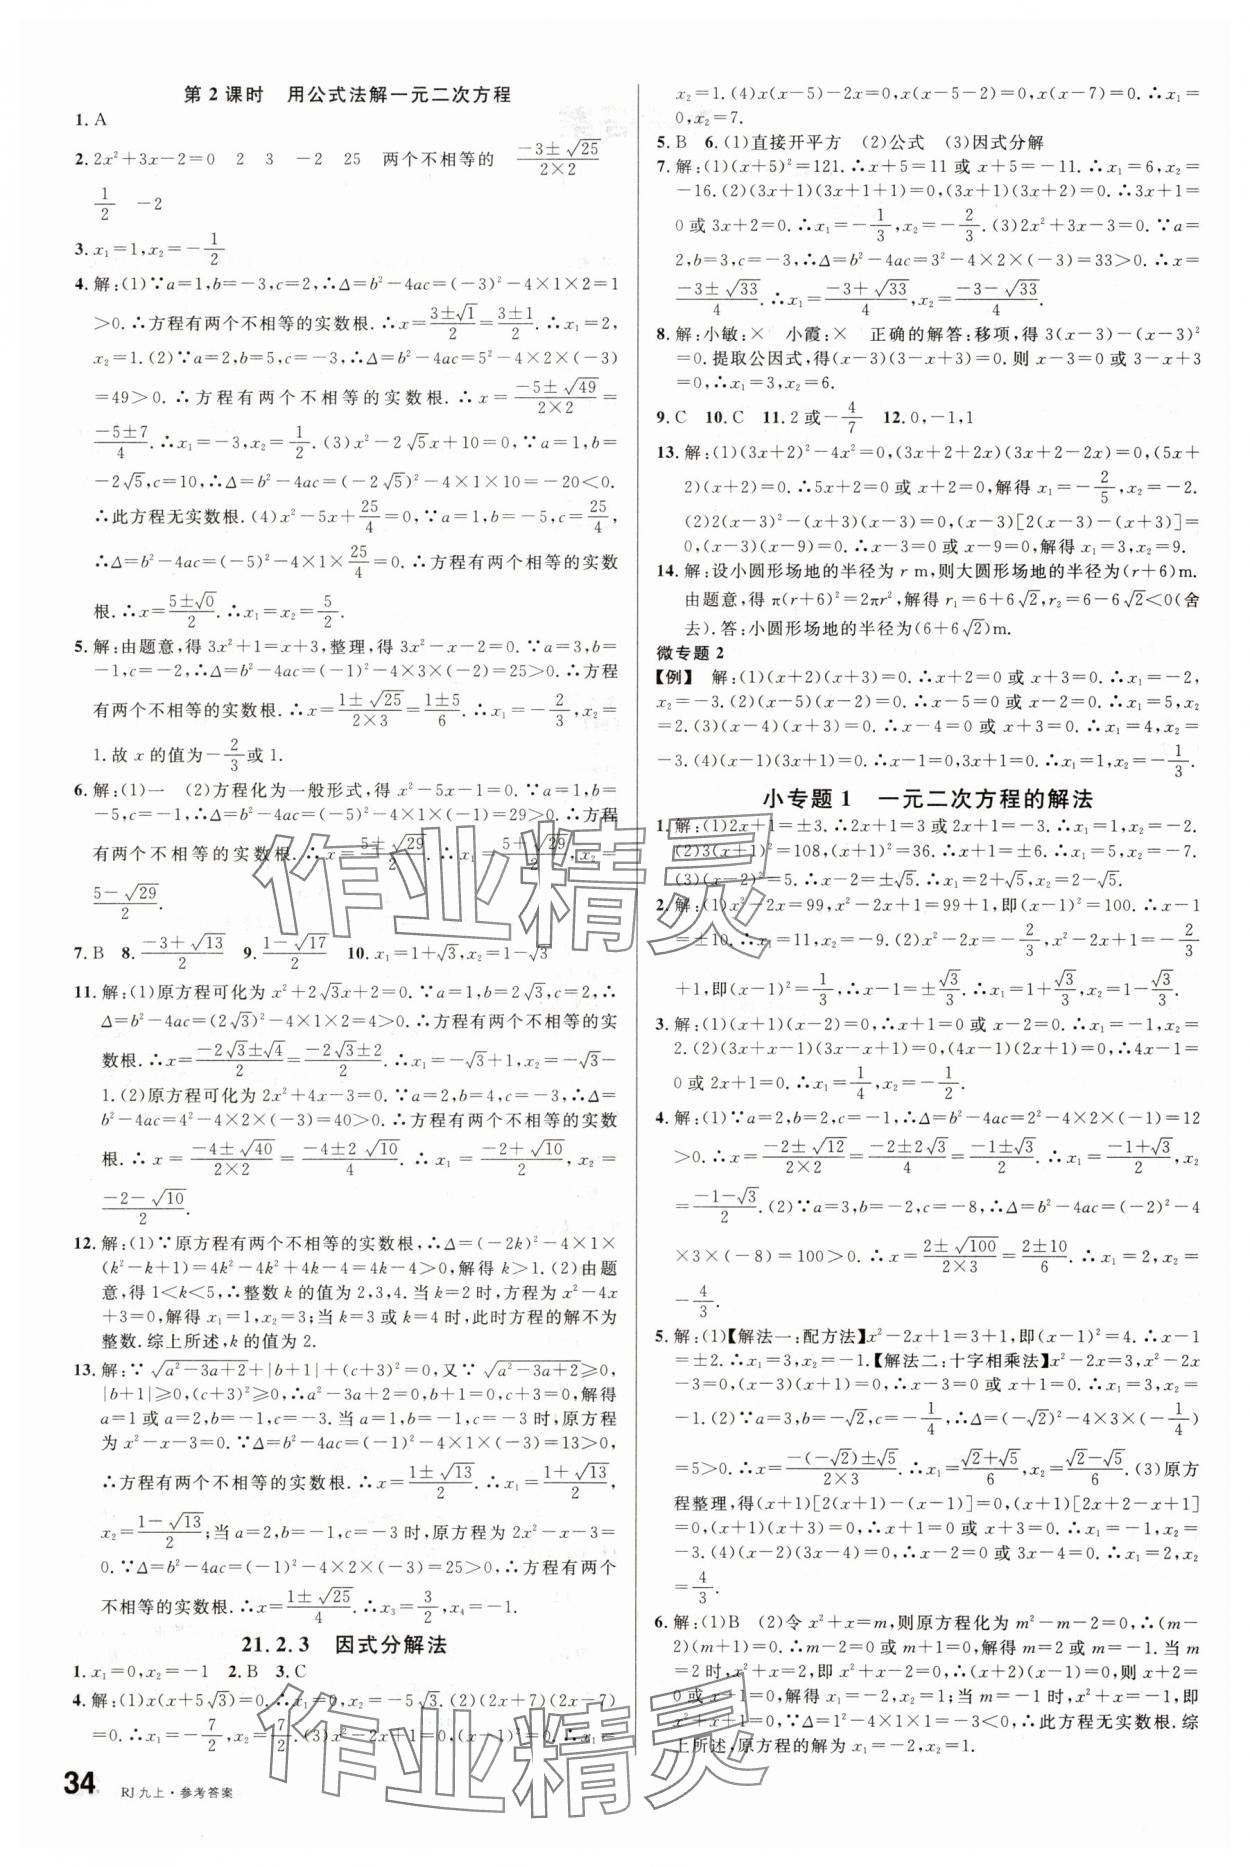 第2课时　用公式法解一元二次方程
1. A
2. 2x²+3x-2=0　2　3　-2　25　两个不相等的　(-3±√25)/(2×2)
1/2　-2
3. x₁=1,x₂=-1/2
4. 解:(1)∵a=1,b=-3,c=2,∴Δ=b²-4ac=(-3)²-4×1×2=1
>0.∴方程有两个不相等的实数根.∴x=(3±√1)/2=(3±1)/2.∴x₁=2,
x₂=1.(2)∵a=2,b=5,c=-3,∴Δ=b²-4ac=5²-4×2×(-3)
=49>0.∴方程有两个不相等的实数根.∴x=(-5±√49)/(2×2)=
(-5±7)/4.∴x₁=-3,x₂=1/2.(3)x²-2√5x+10=0,∵a=1,b=
-2√5,c=10,∴Δ=b²-4ac=(-2√5)²-4×1×10=-20<0.
∴此方程无实数根.(4)x²-5x+25/4=0,∵a=1,b=-5,c=25/4,
∴Δ=b²-4ac=(-5)²-4×1×25/4=0.∴方程有两个相等的实数
根.∴x=(5±√0)/2.∴x₁=x₂=5/2.
5. 解:由题意,得3x²+1=x+3,整理,得3x²-x-2=0.∵a=3,b=
-1,c=-2,∴Δ=b²-4ac=(-1)²-4×3×(-2)=25>0.∴方程
有两个不相等的实数根.∴x=(1±√25)/(2×3)=(1±5)/6.∴x₁=-2/3,x₂=
1.故x的值为-2/3或1.
6. 解:(1)一　(2)方程化为一般形式,得x²-5x-1=0.∵a=1,b=
-5,c=-1,∴Δ=b²-4ac=(-5)²-4×1×(-1)=29>0.∴方程
有两个不相等的实数根.∴x=(5±√29)/2.∴x₁=(5+√29)/2,x₂=
(5-√29)/2.
7. B　8. (-3+√13)/2　9. (1-√17)/2　10. x₁=1+√3,x₂=1-√3
11. 解:(1)原方程可化为x²+2√3x+2=0.∵a=1,b=2√3,c=2,∴
Δ=b²-4ac=(2√3)²-4×1×2=4>0.∴方程有两个不相等的实
数根.∴x=(-2√3±√4)/2=(-2√3±2)/2.∴x₁=-√3+1,x₂=-√3-
1.(2)原方程可化为2x²+4x-3=0.∵a=2,b=4,c=-3,∴Δ=
b²-4ac=4²-4×2×(-3)=40>0.∴方程有两个不相等的实数
根.∴x=(-4±√40)/(2×2)=(-4±2√10)/4.∴x₁=(-2+√10)/2,x₂=
(-2-√10)/2.
12. 解:(1)∵原方程有两个不相等的实数根,∴Δ=(-2k)²-4×1×
(k²-k+1)=4k²-4k²+4k-4=4k-4>0,解得k>1.(2)由题
意,得1<k<5,∴整数k的值为2,3,4.当k=2时,方程为x²-4x
+3=0,解得x₁=1,x₂=3;当k=3或k=4时,此时方程的解不为
整数.综上所述,k的值为2.
13. 解:∵√(a²-3a+2)+|b+1|+(c+3)²=0,又∵√(a²-3a+2)≥0,
|b+1|≥0,(c+3)²≥0,∴a²-3a+2=0,b+1=0,c+3=0,解得
a=1或a=2,b=-1,c=-3.当a=1,b=-1,c=-3时,原方程
为x²-x-3=0.∵Δ=b²-4ac=(-1)²-4×1×(-3)=13>0,
∴方程有两个不相等的实数根.∴x=(1±√13)/2.∴x₁=(1+√13)/2,
x₂=(1-√13)/2;当a=2,b=-1,c=-3时,原方程为2x²-x-3=
0.∵Δ=b²-4ac=(-1)²-4×2×(-3)=25>0,∴方程有两个
不相等的实数根.∴x=(1±√25)/4.∴x₃=3/2,x₄=-1.
21.2.3　因式分解法
1. x₁=0,x₂=-1　2. B　3. C
4. 解:(1)x(x+5√3)=0.∴x₁=0,x₂=-5√3.(2)(2x+7)(2x-7)
=0.∴x₁=-7/2,x₂=7/2.(3)x²-2x+1=0,(x-1)²=0.∴x₁=
x₂=1.(4)x(x-5)-2x=0,x(x-5-2)=0,x(x-7)=0.∴x₁=
0,x₂=7.
5. B　6. (1)直接开平方　(2)公式　(3)因式分解
7. 解:(1)(x+5)²=121.∴x+5=11或x+5=-11.∴x₁=6,x₂=
-16.(2)(3x+1)(3x+1+1)=0,(3x+1)(3x+2)=0.∴3x+1=
0或3x+2=0.∴x₁=-1/3,x₂=-2/3.(3)2x²+3x-3=0.∵a=
2,b=3,c=-3,∴Δ=b²-4ac=3²-4×2×(-3)=33>0.∴x=
(-3±√33)/4.∴x₁=(-3+√33)/4,x₂=(-3-√33)/4.
8. 解:小敏:×　小霞:×　正确的解答:移项,得3(x-3)-(x-3)²
=0.提取公因式,得(x-3)(3-x+3)=0.则x-3=0或3-x+3
=0,∴x₁=3,x₂=6.
9. C　10. C　11. 2或-4/7　12. 0,-1,1
13. 解:(1)(3x+2)²-4x²=0,(3x+2+2x)(3x+2-2x)=0,(5x+
2)(x+2)=0.∴5x+2=0或x+2=0,解得x₁=-2/5,x₂=-2.
(2)2(x-3)²-(x+3)(x-3)=0,(x-3)[2(x-3)-(x+3)]=
0,(x-3)(x-9)=0.∴x-3=0或x-9=0,解得x₁=3,x₂=9.
14. 解:设小圆形场地的半径为r m,则大圆形场地的半径为(r+6)m.
由题意,得π(r+6)²=2πr²,解得r₁=6+6√2,r₂=6-6√2<0(舍
去).答:小圆形场地的半径为(6+6√2)m.
微专题2
【例】　解:(1)(x+2)(x+3)=0.∴x+2=0或x+3=0.∴x₁=-2,
x₂=-3.(2)(x-5)(x-2)=0.∴x-5=0或x-2=0.∴x₁=5,x₂
=2.(3)(x-4)(x+3)=0.∴x-4=0或x+3=0.∴x₁=4,x₂=
-3.(4)(x-1)(3x+1)=0.∴x-1=0,3x+1=0.∴x₁=1,x₂=-1/3.
小专题1　一元二次方程的解法
1. 解:(1)2x+1=±3.∴2x+1=3或2x+1=-3.∴x₁=1,x₂=-2.
(2)3(x+1)²=108,(x+1)²=36.∴x+1=±6.∴x₁=5,x₂=-7.
(3)(x-2)²=5.∴x-2=±√5.∴x₁=2+√5,x₂=2-√5.
2. 解:(1)x²-2x=99,x²-2x+1=99+1,即(x-1)²=100.∴x-1
=±10.∴x₁=11,x₂=-9.(2)x²-2x=-2/3,x²-2x+1=-2/3
+1,即(x-1)²=1/3,∴x-1=±√3/3.∴x₁=1+√3/3,x₂=1-√3/3.
3. 解:(1)(x+1)(x-2)=0,∴x+1=0或x-2=0.∴x₁=-1,x₂=
2.(2)(3x+x-1)(3x-x+1)=0,(4x-1)(2x+1)=0,∴4x-1=
0或2x+1=0.∴x₁=1/4,x₂=-1/2.
4. 解:(1)∵a=2,b=2,c=-1,∴Δ=b²-4ac=2²-4×2×(-1)=12
>0.∴x=(-2±√12)/(2×2)=(-2±2√3)/4=(-1±√3)/2.∴x₁=(-1+√3)/2,x₂
=(-1-√3)/2.(2)∵a=3,b=-2,c=-8,∴Δ=b²-4ac=(-2)²-4
×3×(-8)=100>0.∴x=(2±√100)/(2×3)=(2±10)/6.∴x₁=2,x₂=
-4/3.
5. 解:(1)【解法一:配方法】x²-2x+1=3+1,即(x-1)²=4.∴x-1
=±2.∴x₁=3,x₂=-1.【解法二:十字相乘法】x²-2x=3,x²-2x
-3=0,(x-3)(x+1)=0.∴x-3=0或x+1=0.∴x₁=3,x₂=
-1.(2)∵a=3,b=-√2,c=-1/4,∴Δ=(-√2)²-4×3×(-1/4)
=5>0.∴x=(-(-√2)±√5)/(2×3).∴x₁=(√2+√5)/6,x₂=(√2-√5)/6.(3)原方
程整理,得(x+1)[2(x+1)-(x-1)]=0,(x+1)[2x+2-x+1]
=0,(x+1)(x+3)=0.∴x+1=0或x+3=0.∴x₁=-1,x₂=
-3.(4)(x-2)(3x-4)=0,∴x-2=0或3x-4=0.∴x₁=2,x₂
=4/3.
6. 解:(1)B　(2)令x²+x=m,则原方程化为m²-m-2=0,∴(m-
2)(m+1)=0.∴m-2=0或m+1=0,解得m=2或m=-1.当m
=2时,x²+x=2,即x²+x-2=0.∴(x+2)(x-1)=0,则x+2=
0或x-1=0,解得x₁=-2,x₂=1;当m=-1时,x²+x=-1,即
x²+x+1=0.∵Δ=1²-4×1×1=-3<0,∴此方程无实数根.综
上所述,原方程的解为x₁=-2,x₂=1.
34　RJ九上·参考答案
作业精灵
作业精灵